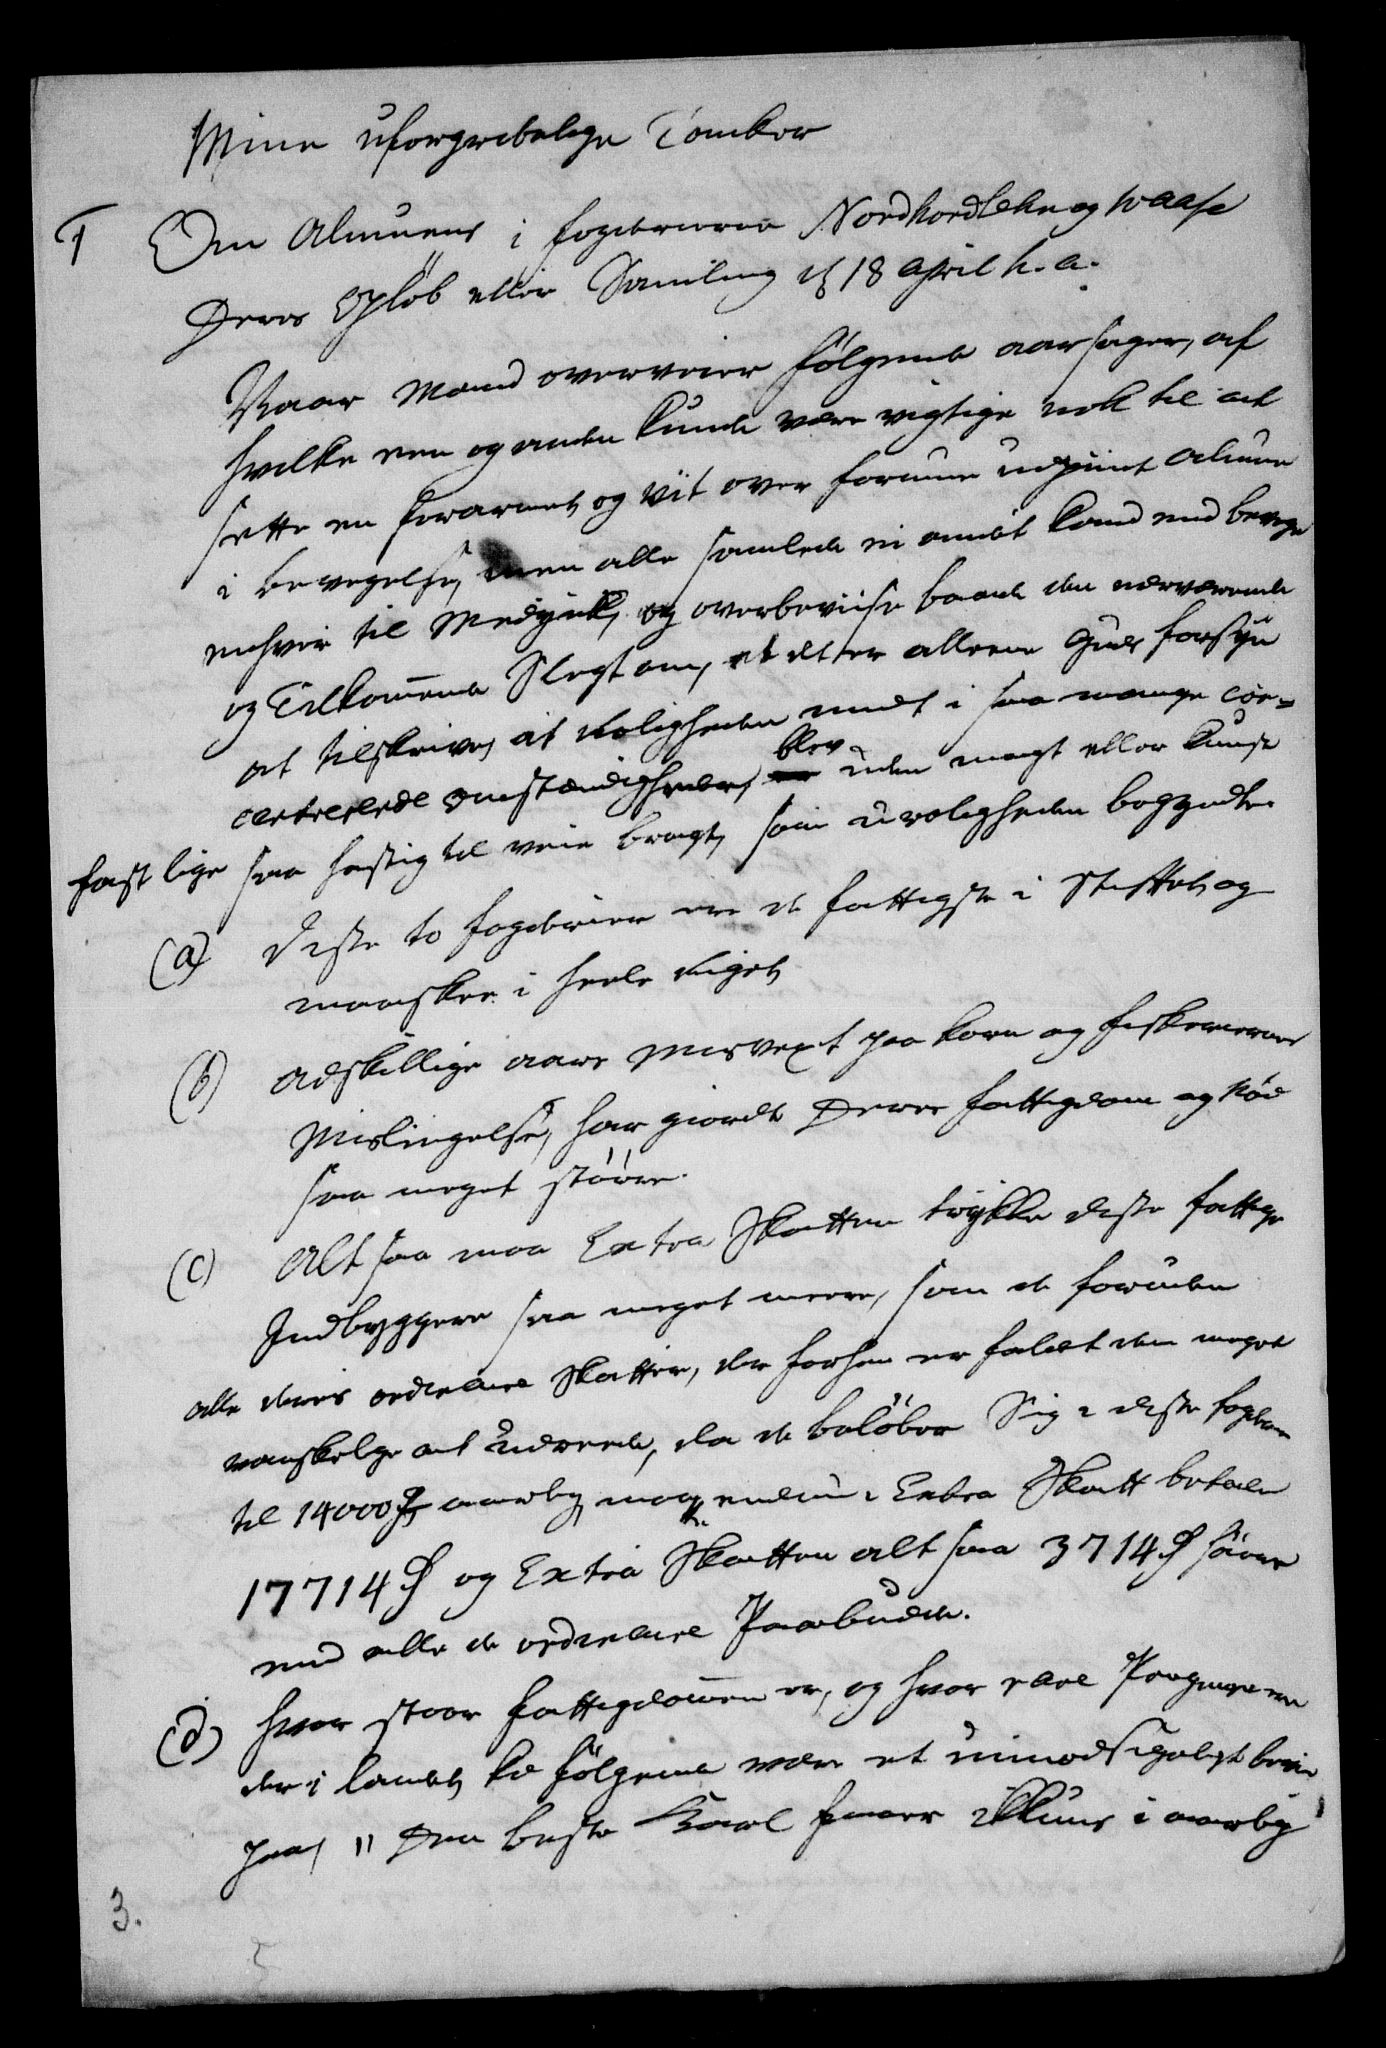 Mine uforgribelige Tanker
1 Om Almuens i fogderierne Nordhordlehn og Waase
Deres Opløb eller Samling d 18 April h. a.
Naar Mand overveier følgende aarsager, af
hvilke een og anden kunde være vigtige nok til at
sette en forarmet og viit over formue udpiint Almue
i bevegelse, men alle samlede ei andet kand end bevege
enhver til Medynk, og overbeviise baade den nærværende
og Tilkom̄ende Slegt om, at det er alleene Guds forsyn
at tilskrive, at Roligheden midt i saa mange
omstændigheder, blev uden magt eller kunst
fast lige saa hastig til veie bragt, som uroligheden begyndte
(a) Disse to fogderier ere de fattigste i Stiftet, og
maaskee i heele Riget
(b) Adskillige aars Misvext paa korn og fiskeriernes
Mislingelse, har giordt Deres fattigdom og Nød
saa meget større.
(c) Alt saa maa Extra Skatten trykke disse fattige
Indbyggere saa meget meere, som de foruden
alle deres ordinaire Skatter, der forhen er faldt dem meget
vanskelige at udreede, da de beløber Sig i disse fogderier
til 14000 rd aarlig, maa endnu i Extra Skatt betale
17714 rd og Extra Skatten alt saa 3714 rd høiere
end alle de ordinaire Paabudde.
(d) hvor stoer fattigdom̄en er, og hvor rare Pengene ere
der i landet, kd følgende være et uimodsigeligt beviis
paa, " Den beste Karl faaer ikkuns i aarlig
3.